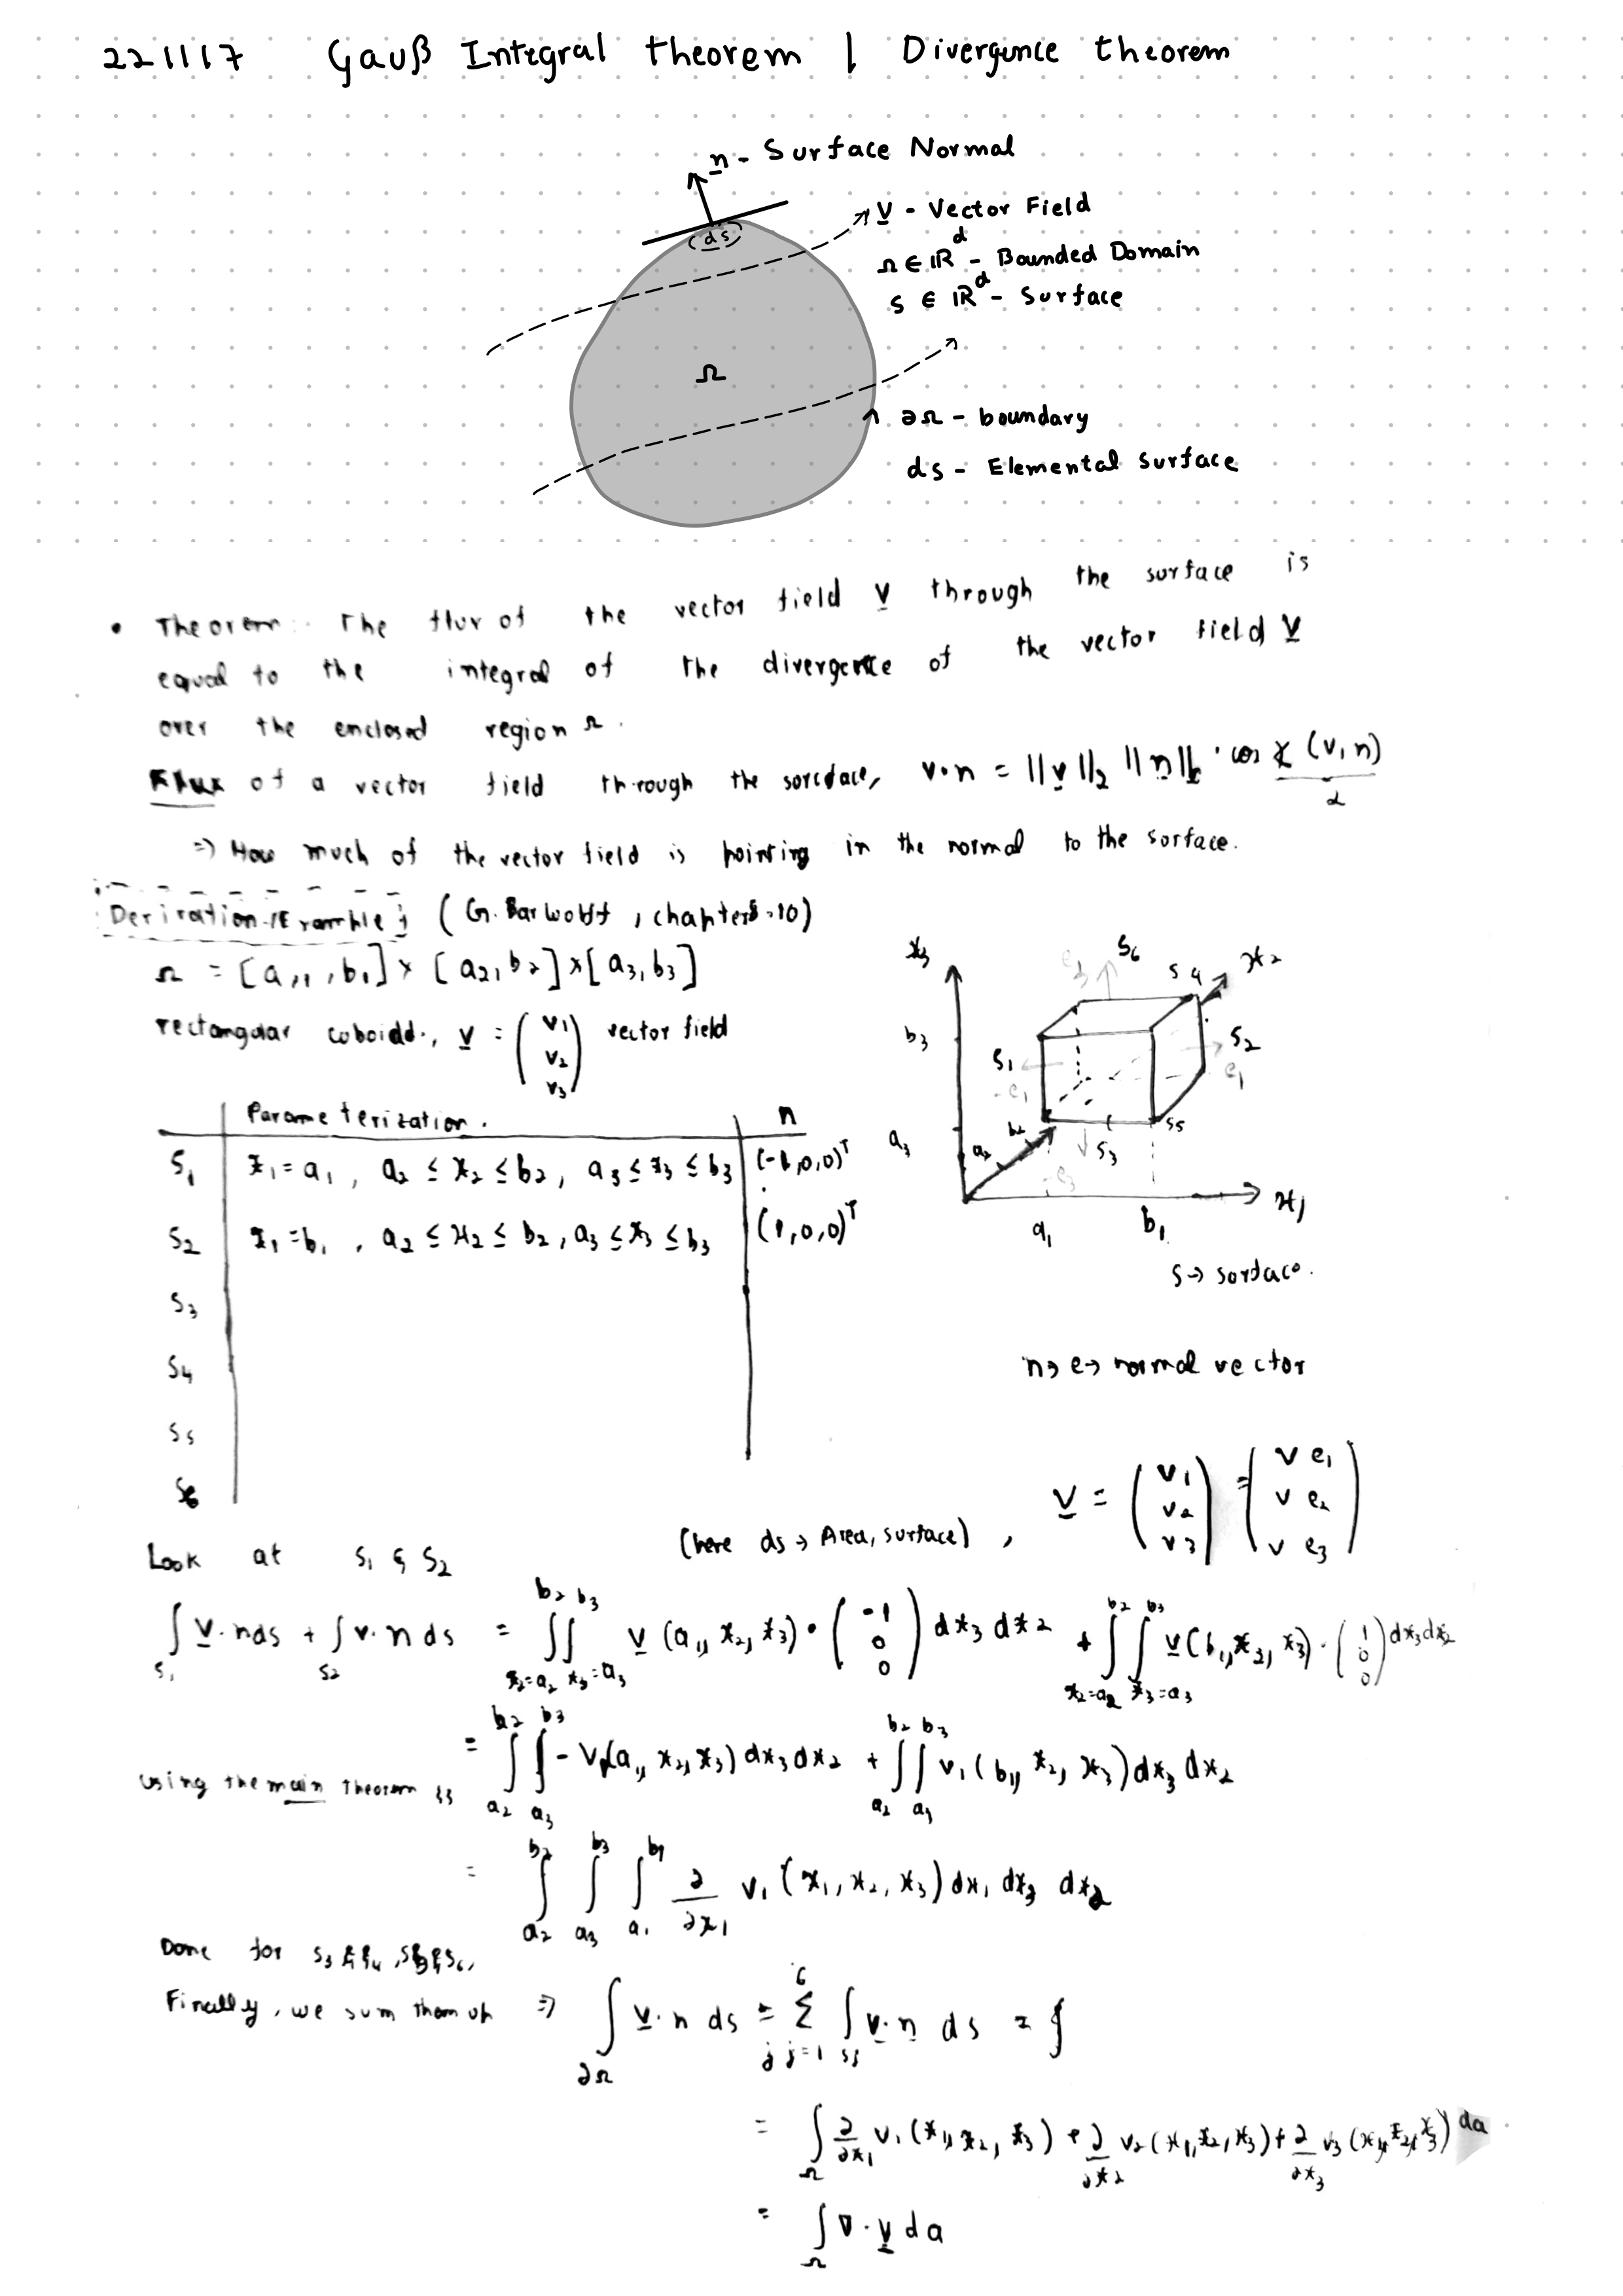 221117 Gauß Integral theorem | Divergence theorem
n - Surface Normal
(ds)
V - Vector Field
Ω ∈ ℝ^d - Bounded Domain
S ∈ ℝ^d - Surface
Ω
∂Ω - boundary
ds - Elemental Surface
• Theorem: The flux of the vector field V through the surface is
equal to the integral of the divergence of the vector field V
over the enclosed region Ω.
Flux of a vector field through the sorface, v·n = ||v||₂ ||n||₂ · cos ∢(v,n)
α
⇒ How much of the vector field is pointing in the normal to the sorface.
Derivation/Example: (G. Barwolff, chapter 8-10)
Ω = [a₁, b₁] × [a₂, b₂] × [a₃, b₃]
rectangular coboidd., v = (v₁ v₂ v₃) vector field
x₃ e₃ S₆ S₄ x₂
b₃ S₁ -e₁ S₂ e₁
a₃ a₂ b₂ S₃ S₅ -e₃
a₁ b₁ x₁
S → sorface.
Parameterization. n
S₁ x₁ = a₁, a₂ ≤ x₂ ≤ b₂, a₃ ≤ x₃ ≤ b₃ (-1,0,0)ᵀ
S₂ x₁ = b₁, a₂ ≤ x₂ ≤ b₂, a₃ ≤ x₃ ≤ b₃ (1,0,0)ᵀ
S₃
S₄
S₅
S₆
n → e → normal vector
(here ds → Area, surface), v = (v₁ v₂ v₃) = (v e₁ v e₂ v e₃)
Look at S₁ & S₂
∫_S₁ v·n ds + ∫_S₂ v·n ds = ∫_{x₂=a₂}^{b₂} ∫_{x₃=a₃}^{b₃} v(a₁, x₂, x₃) · (-1 0 0) dx₃ dx₂ + ∫_{x₂=a₂}^{b₂} ∫_{x₃=a₃}^{b₃} v(b₁, x₂, x₃) · (1 0 0) dx₃ dx₂
= ∫_{a₂}^{b₂} ∫_{a₃}^{b₃} - v₁(a₁, x₂, x₃) dx₃ dx₂ + ∫_{a₂}^{b₂} ∫_{a₃}^{b₃} v₁(b₁, x₂, x₃) dx₃ dx₂
using the main theorem
= ∫_{a₂}^{b₂} ∫_{a₃}^{b₃} ∫_{a₁}^{b₁} ∂/∂x₁ v₁(x₁, x₂, x₃) dx₁ dx₃ dx₂
Done for S₃ & S₄, S₅ & S₆,
Finally, we sum them up ⇒ ∫_∂Ω v·n ds = Σ_{j=1}^{6} ∫_Sj v·n ds = ∮
= ∫_Ω ∂/∂x₁ v₁(x₁, x₂, x₃) + ∂/∂x₂ v₂(x₁, x₂, x₃) + ∂/∂x₃ v₃(x₁, x₂, x₃) da
= ∫_Ω ∇·v da